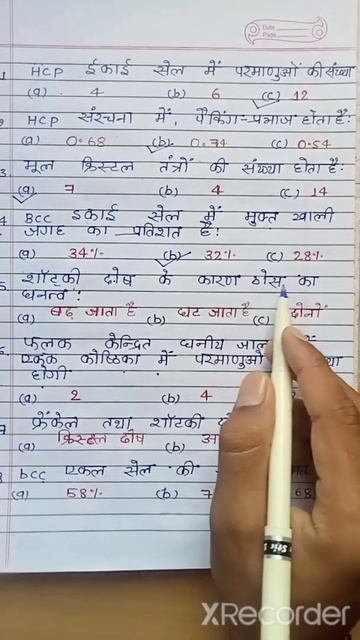 HCP ईकाई सेल में परमाणुओं की संख्या
(a) 4 (b) 6 (c) 12
HCP संरचना में, पैकिंग-प्रभाज होता है:
(a) 0.68 (b) 0.74 (c) 0.54
3. मूल क्रिस्टल तंत्रों की संख्या होता है:
(a) 7 (b) 4 (c) 14
BCC इकाई सेल में मुक्त खाली
जगह का प्रतिशत है:
(a) 34% (b) 32% (c) 28%
शॉट्की दोष के कारण ठोस का
घनत्व:
(a) बढ़ जाता है (b) घट जाता है (c) दोनों
फलक केन्द्रित घनीय
एकक कोष्ठिका में परमाणुओं
होगी
(a) 2 (b) 4
फ्रेंकेल तथा शॉटकी
(a) क्रिस्टल दोष (b)
bcc एकल सेल की
(a) 58% (b) 7 68
XRecorder